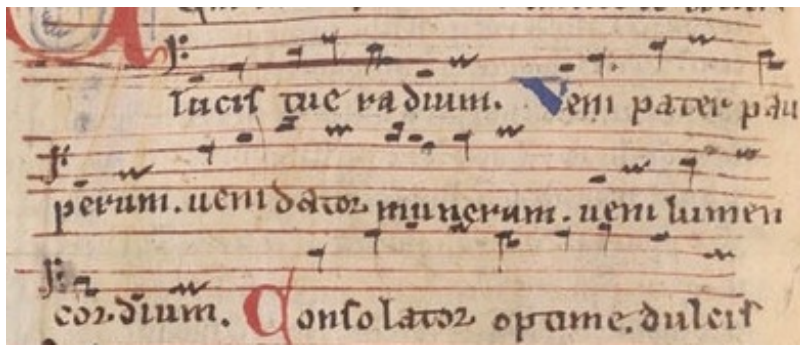 lucis tue radium. Veni pater pau
perum. ueni dator munerum. ueni lumen
cordium. Consolator optime. dulcis